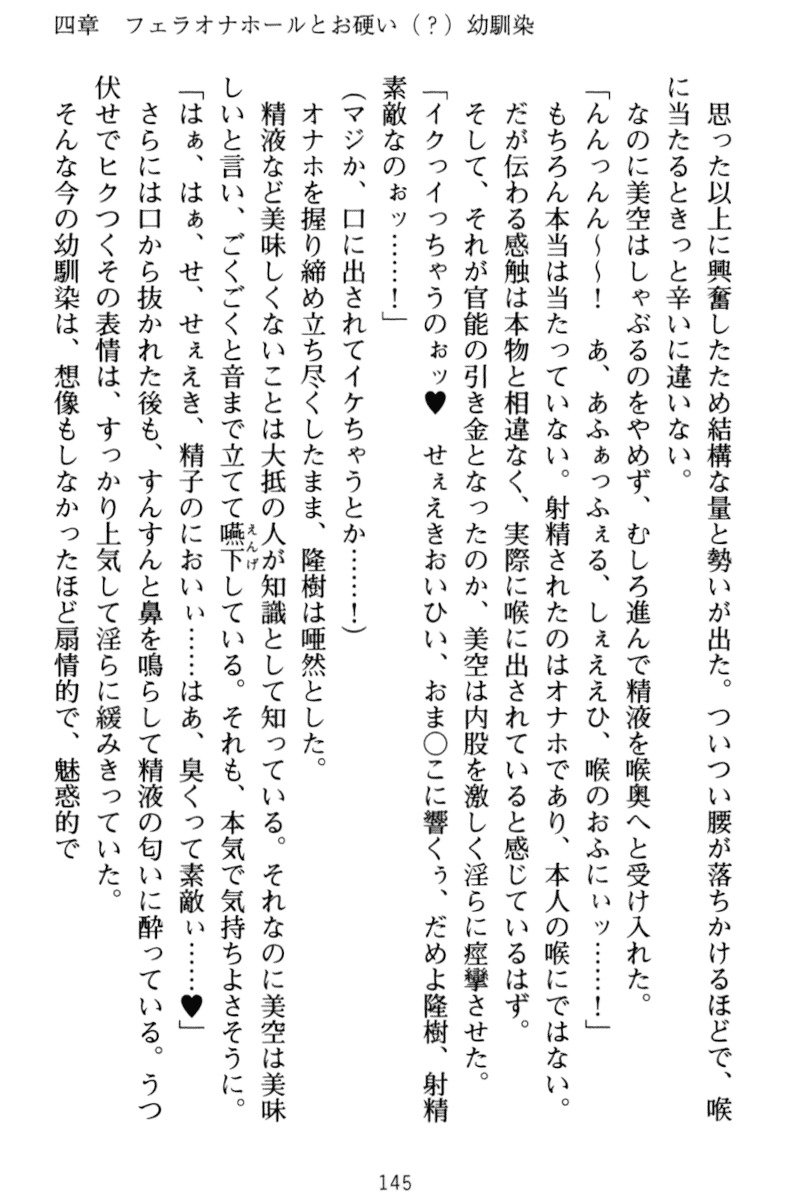 四章　フェラオナホールとお硬い（？）幼馴染
思った以上に興奮したため結構な量と勢いが出た。ついつい腰が落ちかけるほどで、喉
に当たるときっと辛いに違いない。
なのに美空はしゃぶるのをやめず、むしろ進んで精液を喉奥へと受け入れた。
「んんっんん～～！　あ、あふぁっふぇる、しぇええひ、喉のおふにぃッ……！」
もちろん本当は当たっていない。射精されたのはオナホであり、本人の喉にではない。
だが伝わる感触は本物と相違なく、実際に喉に出されていると感じているはず。
そして、それが官能の引き金となったのか、美空は内股を激しく淫らに痙攣させた。
「イクっイっちゃうのぉッ♥　せぇえきおいひい、おま〇こに響くぅ、だめよ隆樹、射精
素敵なのぉッ……！」
（マジか、口に出されてイケちゃうとか……！）
オナホを握り締め立ち尽くしたまま、隆樹は唖然とした。
精液など美味しくないことは大抵の人が知識として知っている。それなのに美空は美味
しいと言い、ごくごくと音まで立てて嚥下えんげしている。それも、本気で気持ちよさそうに。
「はぁ、はぁ、せ、せぇえき、精子のにおいぃ……はあ、臭くって素敵ぃ……♥」
さらには口から抜かれた後も、すんすんと鼻を鳴らして精液の匂いに酔っている。うつ
伏せでヒクつくその表情は、すっかり上気して淫らに緩みきっていた。
そんな今の幼馴染は、想像もしなかったほど扇情的で、魅惑的で
145